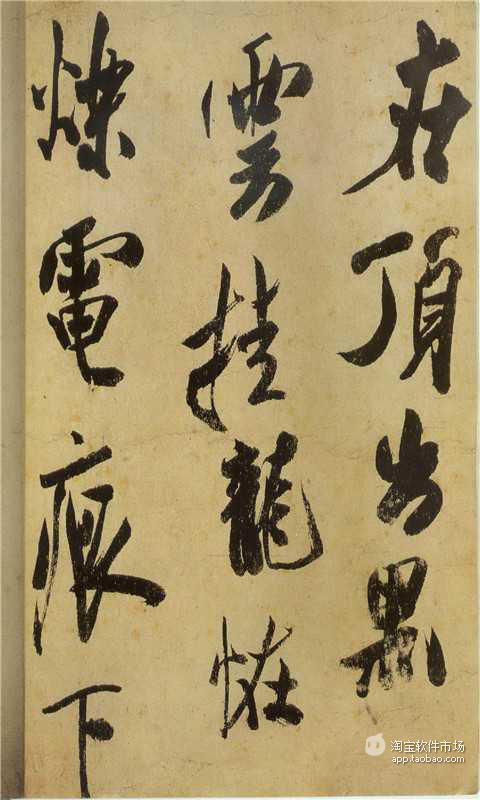 在頂出黑
雲挂龍恠
爍電痕下
淘宝软件市场
app.taobao.com